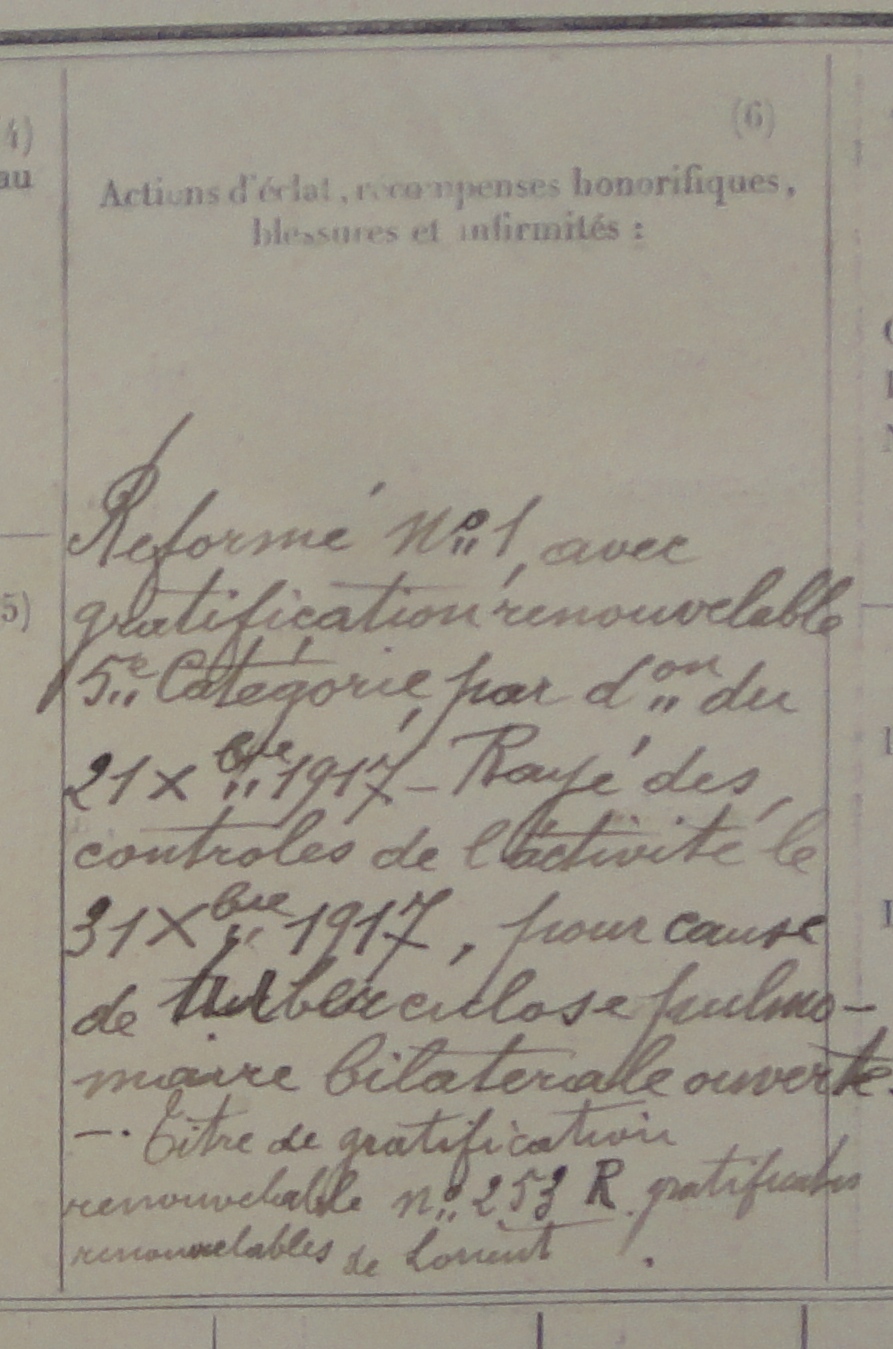 4)
(6)
au
Actions d'éclat, récompenses honorifiques,
blessures et infirmités :
Reformé No 1, avec
gratification renouvelable
5)
5e Catégorie, par don du
21 Xbre 1917 - Rayé des
controles de l'activité le
31 Xbre 1917, pour cause
de tuberculose pulmo-
naire bilaterale ouverte.
—. Titre de gratification
renouvelable no 253 R. gratifications
renouvelables de Lorient.